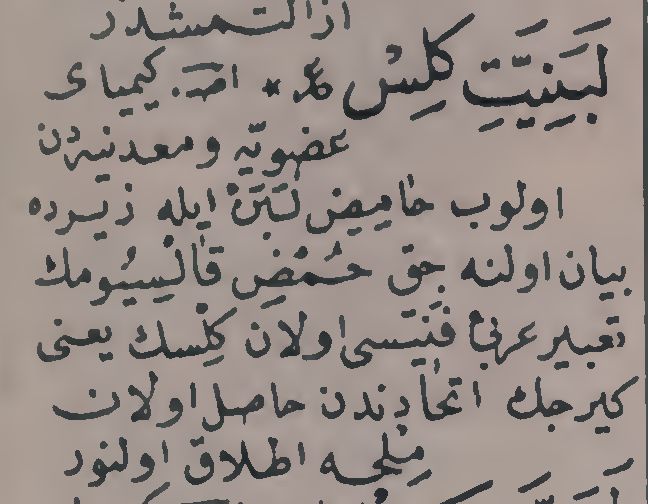 ازالتمشدر
لَبَنِیَّتِ کِلِسْ * اص. کیمیای
عضویّه و معدنیه‌دن
اولوب حامیض لَبَنْ ایله زیرده
بیان اولنه جق حُمْضِ قالْسِیُومك
تعبیر عربی فَنّیسی اولان کِلْسك یعنی
کیرجك اتحادندن حاصل اولان
مِلْحه اطلاق اولنور